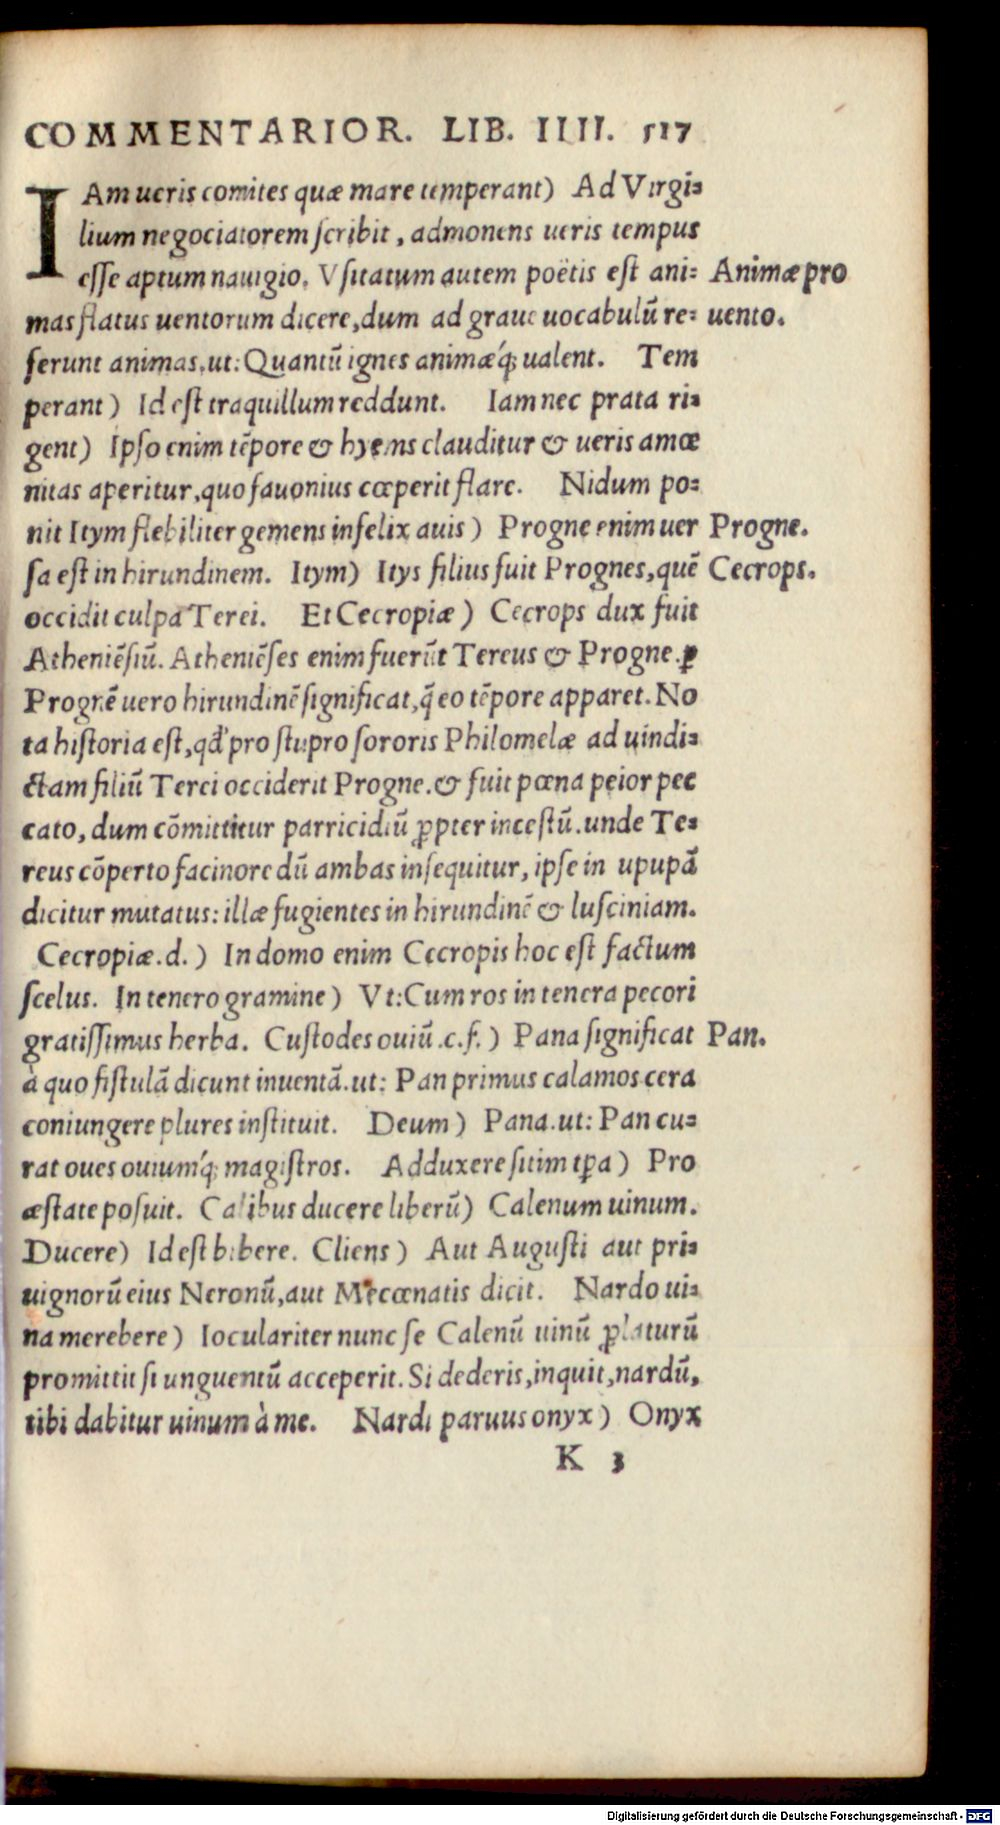 COMMENTARIOR. LIB. IIII. 517
IAm ueris comites quæ mare temperant) Ad Virgi-
lium negociatorem scribit, admonens ueris tempus
esse aptum nauigio. Vsitatum autem poëtis est ani- Animæ pro
mas flatus uentorum dicere, dum ad graue uocabulũ re- uento.
ferunt animas, ut: Quantũ ignes animæq́; ualent. Tem
perant) Id est traquillum reddunt. Iam nec prata ri-
gent) Ipso enim tẽpore & hyems clauditur & ueris amœ
nitas aperitur, quo fauonius cœperit flare. Nidum po-
nit Itym flebiliter gemens infelix auis) Progne enim uer Progne.
sa est in hirundinem. Itym) Itys filius fuit Prognes, quẽ Cecrops.
occidit culpa Terei. Et Cecropiæ) Cecrops dux fuit
Atheniẽsiũ. Atheniẽses enim fuerũt Tereus & Progne. ꝑ
Prognẽ uero hirundinẽ significat, q̃ eo tẽpore apparet. No
ta historia est, qd' pro stupro sororis Philomelæ ad uindi-
ctam filiũ Terei occiderit Progne. & fuit pœna peior pec
cato, dum cõmittitur parricidiũ ꝓpter incestũ. unde Te-
reus cõperto facinore dũ ambas insequitur, ipse in upupã
dicitur mutatus: illæ fugientes in hirundinẽ & lusciniam.
Cecropiæ.d.) In domo enim Cecropis hoc est factum
scelus. In tenero gramine) Vt: Cum ros in tenera pecori
gratissimus herba. Custodes ouiũ.c.f.) Pana significat Pan.
à quo fistulã dicunt inuentã. ut: Pan primus calamos cera
coniungere plures instituit. Deum) Pana. ut: Pan cu-
rat oues ouiumq́; magistros. Adduxere sitim tꝑa) Pro
æstate posuit. Calibus ducere liberũ) Calenum uinum.
Ducere) Id est bibere. Cliens) Aut Augusti aut pri-
uignorũ eius Neronũ, aut Mecœnatis dicit. Nardo ui-
na merebere) Ioculariter nunc se Calenũ uinũ ꝓlaturũ
promittit si unguentũ acceperit. Si dederis, inquit, nardũ,
tibi dabitur uinum à me. Nardi paruus onyx) Onyx
K 3
Digitalisierung gefördert durch die Deutsche Forschungsgemeinschaft - DFG